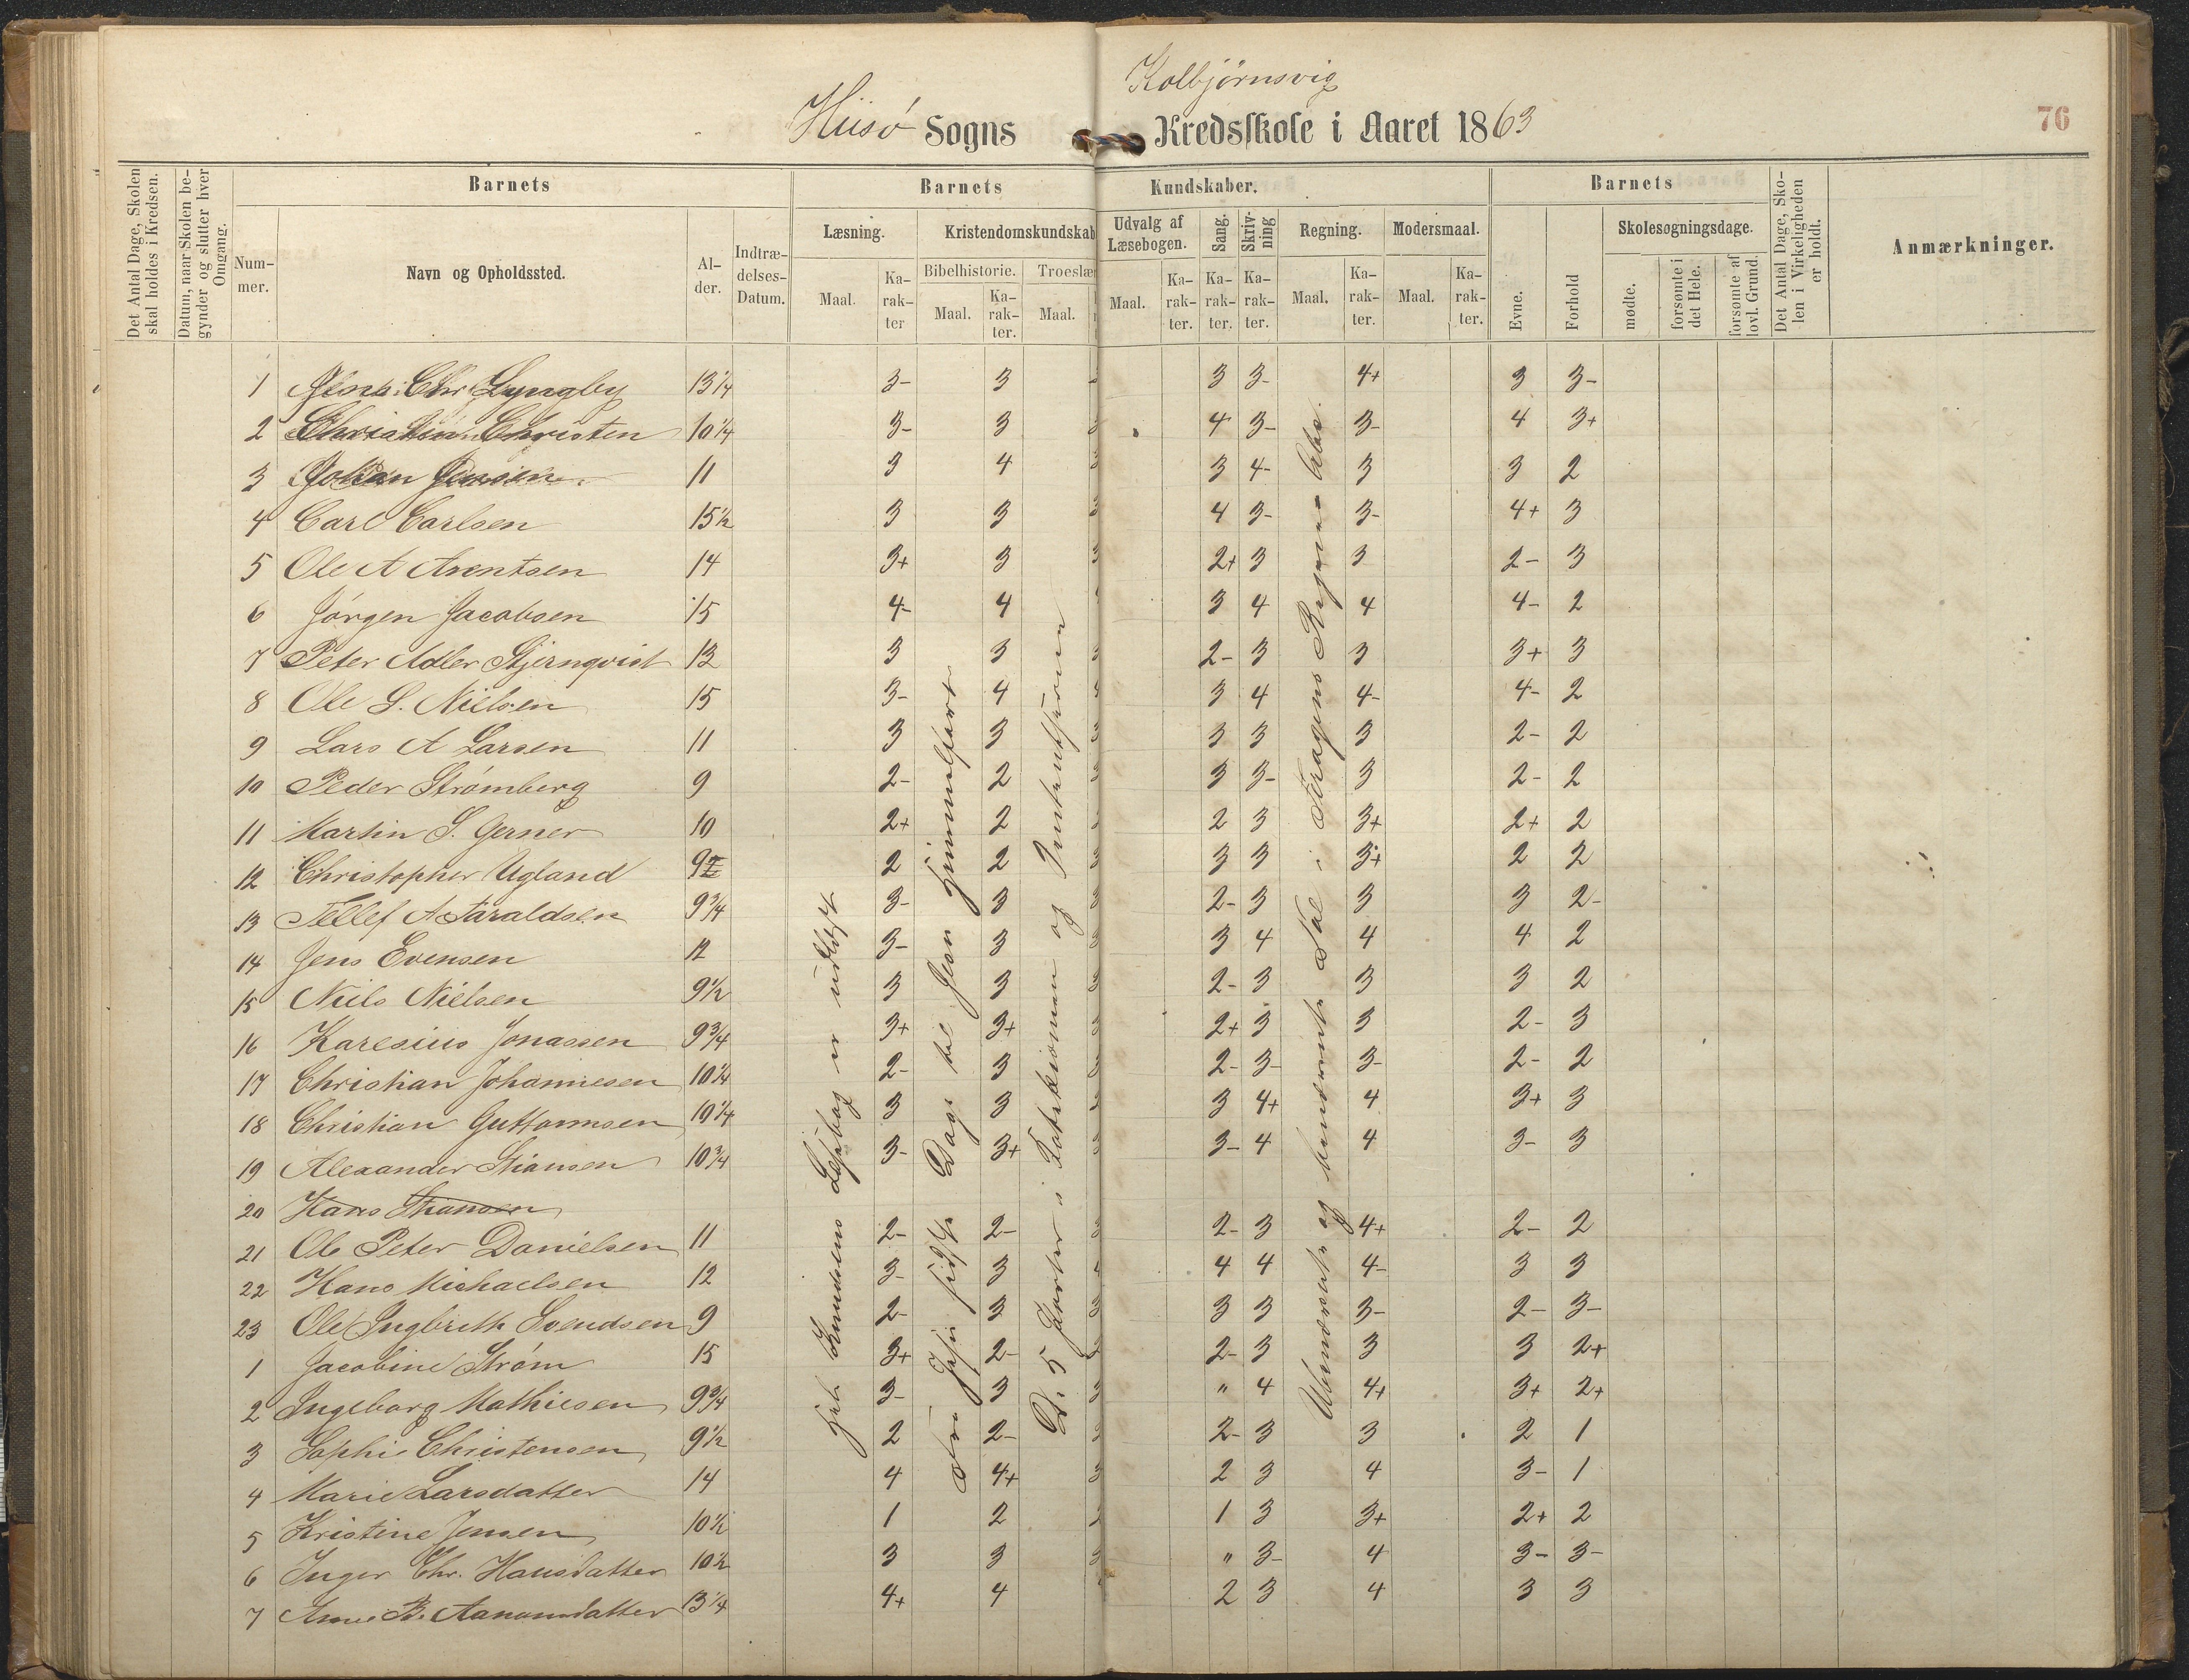 Kolbjørnsvig
Hiisø Sogns Kredsskole i Aaret 1863
76
Det Antal Dage, Skolen skal holdes i Kredsen.
Datum, naar Skolen begynder og slutter hver Omgang.
Barnets
Barnets Kundskaber.
Barnets
Det Antal Dage, Skolen i Virkeligheden er holdt.
Anmærkninger.
Nummer.
Navn og Opholdssted.
Alder.
Indtrædelses-Datum.
Læsning.
Kristendomskundskab
Udvalg af Læsebogen.
Sang.
Skrivning
Regning.
Modersmaal.
Evne.
Forhold
Skolesøgningsdage.
Bibelhistorie.
Troeslær
Maal. Karakter
Maal. Karakter.
Maal.
Maal. Karakter.
Karakter. Karakter.
Maal. Karakter.
Maal. Karakter.
mødte.
forsømte i det Hele.
forsømte af lovl. Grund.
1 Chr. Lyngby 13 1/4 3- 3 3 3- 4+ 3 3-
2 Christen 10 1/4 3- 3 4 3- 3- 4 3+
3 Johan Jensen 11 3 4 3 4- 3 3 2
4 Carl Carlsen 15 1/2 3 3 4 3- 3- 4+ 3
5 Ole A Arentsen 14 3+ 3 2+ 3 3 2- 3
6 Jørgen Jacobsen 15 4- 4 3 4 4 4- 2
7 Peter Adler Stjernqvist 13 3 3 2- 3 3 3+ 3
8 Ole S. Nielsen 15 3- 4 3 4 4- 4- 2
9 Lars A Larsen 11 3 3 3 3 3 2- 2
10 Peder Strømberg 9 2- 2 3 3- 3 2- 2
11 Martin S. Gerner 10 2+ 2 2 3 3+ 2+ 2
12 Christopher Ugland 9 2 2 3 3 3+ 2 2
13 Tellef A Taraldsen 9 3/4 3- 3 2- 3 3 3 2-
14 Jens Evensen 12 3- 3 3 4 4 4 2
15 Niels Nielsen 9 1/2 3 3 2- 3 3 3 2
16 Karesius Jonassen 9 3/4 3+ 3+ 2+ 3 3 2- 3
17 Christian Johannesen 10 1/4 2- 3 2- 3- 3- 2- 2
18 Christian Guttormsen 10 1/4 3 3 3 4+ 4 3+ 3
19 Alexander Stiansen 10 3/4 3- 3+ 3- 4 4 3- 3
20 Hans Stiansen
21 Ole Peter Danielsen 11 2- 2- 2- 3 4+ 2- 2
22 Hans Michaelsen 12 3- 3 4 4 4- 3 3
23 Ole Ingbreth Svendsen 9 2- 3 3 3 3- 2- 3-
1 Jacobine Strøm 15 3+ 2- 2- 3 3 3 2+
2 Ingeborg Mathiesen 9 3/4 3- 3 " 4 4+ 3+ 2+
3 Sophie Christensen 9 1/2 2 2- 2- 3 3 2 1
4 Marie Larsdatter 14 4 4+ 2 3 4 3- 1
5 Kristine Jensen 10 1/2 1 2 1 3 3+ 2+ 2
6 Inger Chr. Hansdatter 10 1/2 3 3 " 3- 4 3- 3-
7 Anne B. Aanonsdatter 13 1/4 4+ 4 2 3 4 3 3
Knudsens Læsebog er
Dage til Jesu Himmelfart
De 5 Parter i
Ubenævnte og benævnte Tal i